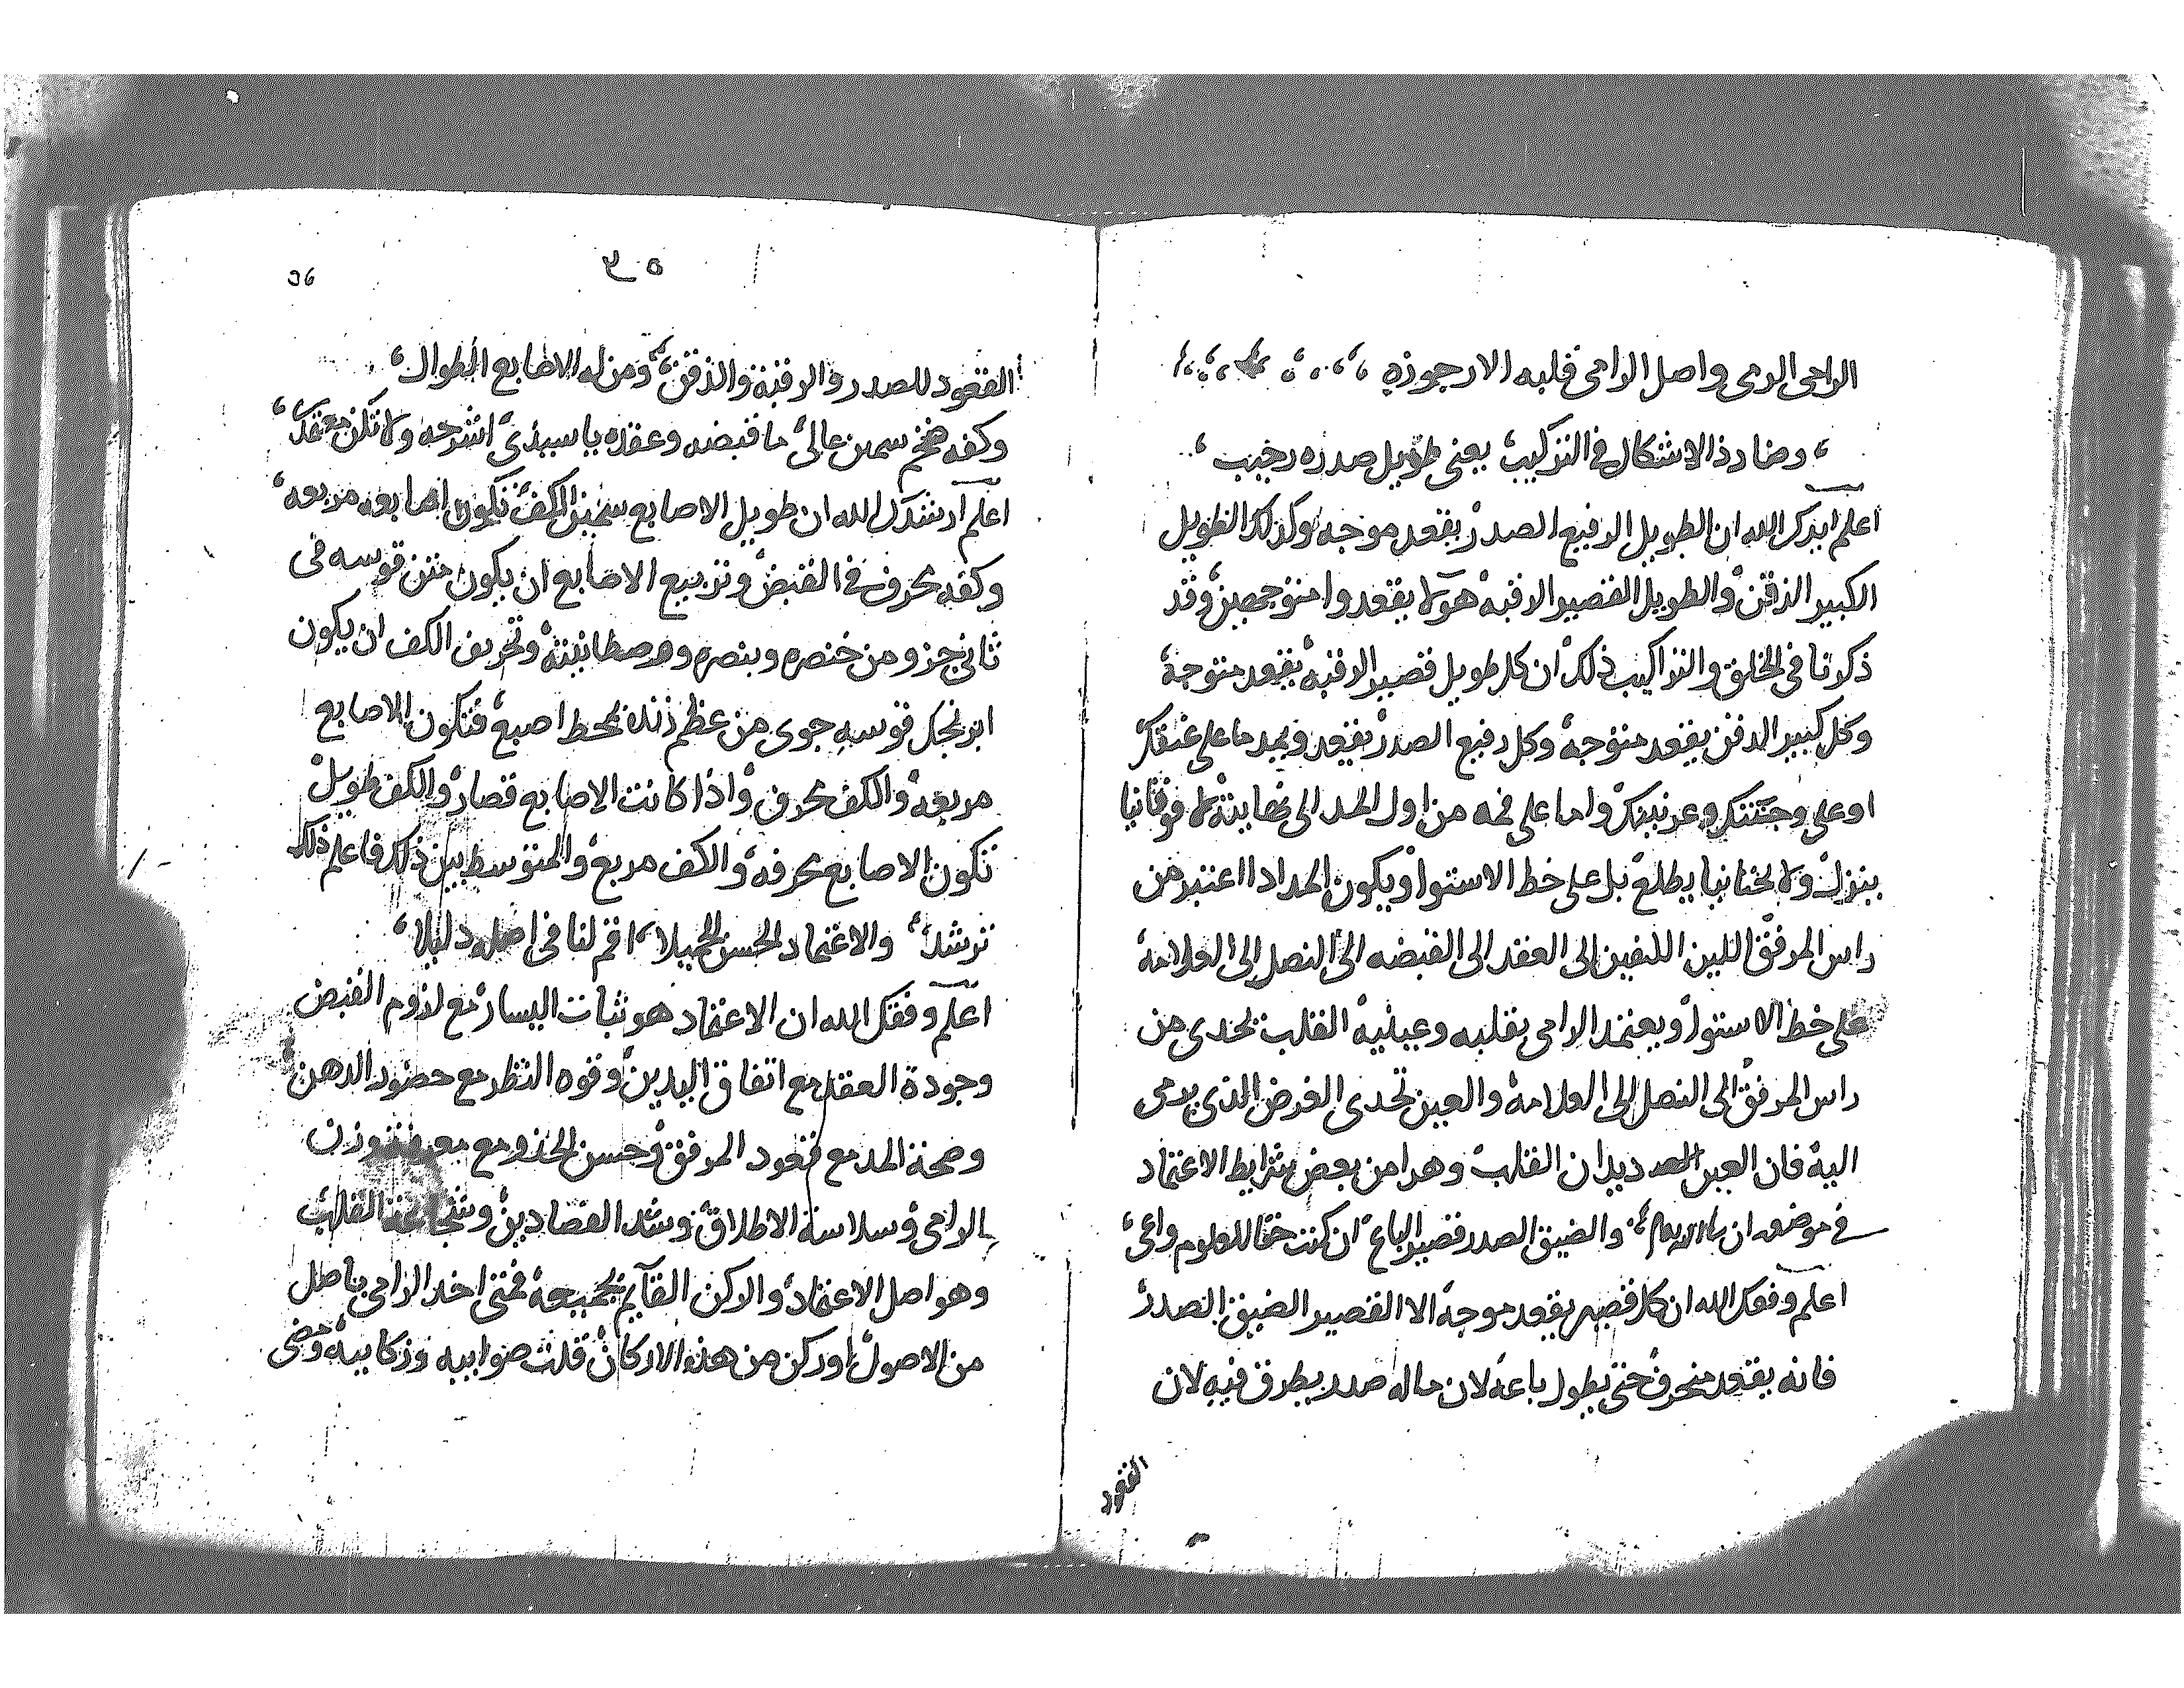 الراجى الرمى واصل الرامى قلبه الارجوزه
وضا دذ الاشكال فى التركيب يعنى طويل صدره رحيب
اعلم ايدك الله ان الطويل الرفيع الصدر يقعد موجه وكذلك الطويل
الكبير الذقن والطويل القصير الرقبه هولا يقعدوا متوجهين وقد
ذكرنا فى الخلق والتراكيب ذلك ان كل طويل قصير الرقبه يقعد متوجه
وكل كبير الدقن يقعد متوجه وكل رفيع الصدر يقعد ويمد ما على عنفكر
او على وجنتك وعرنينك واما على فمه من اول المد الى نهايته لا فوقانيا
ينزل ولا تحتانيا يطلع بل على خط الاستوا ويكون المد اذا اعتبر من
راس المرفق اللين اللفين الى العقد الى القبضه الى النصل الى العلامه
على خط الاستوا ويعتمد الرامى بقلبه وعينيه القلب يحدى من
راس المرفق الى النصل الى العلامه والعين تحدى الغرض الذى يرمى
اليه فان العين ديدان القلب وهدا من بعض شرايط الاعتماد
فى موضعه ان والضيق الصدر قصير الباع ان كنت حقا للعلوم واعى
اعلم وفقك الله ان كل قصير يقعد موجه الا القصير الضيق الصدر
فانه يقعد منحرف حتى يطول باعه لان ماله صدر يطرق فيه لان
القعود
96
القعود للصدر والرقبة والذقن ومن له الاصابع الطوال
وكفه ضخم سمين عالى ما قبضه وعقده يا سيدى اشرحه ولا تكن معقد
اعلم ارشدك الله ان طويل الاصابع سمين الكف تكون اصابعه مربعه
وكفه محرف فى القبض وتربيع الاصابع ان يكون متن قوسه فى
ثانى جزو من خنصره وبنصره وهو مطابقته وتحريف الكف ان يكون
ابرنجك قوسه جوى من عظم زنده بمحط اصبع فتكون الاصابع
مربعه والكف محرف واذا كانت الاصابع قصار والكف طويل
تكون الاصابع محرفه والكف مربع والمتوسط بين ذلك فاعلم ذلك
ترشد والاعتماد الحسن الجميلا اقم لنا فى اصله دليلا
اعلم وفقك الله ان الاعتماد هو ثبات اليسار مع لزوم القبض
وجودة العقد مع اتفاق اليدين وقوه النظر مع حضور الدهن
وصحة المد مع قعود المرفق وحسن الحذو مع معرفة وزن
الرامى وسلاسة الاطلاق وشد العضادين وشجاعة القلب
وهو اصل الاعتماد والركن القآيم بجميعه فمتى اخد الرامى باصل
من الاصول او ركن من هذه الاركان قلت صوابيه ونكاييه ومضى